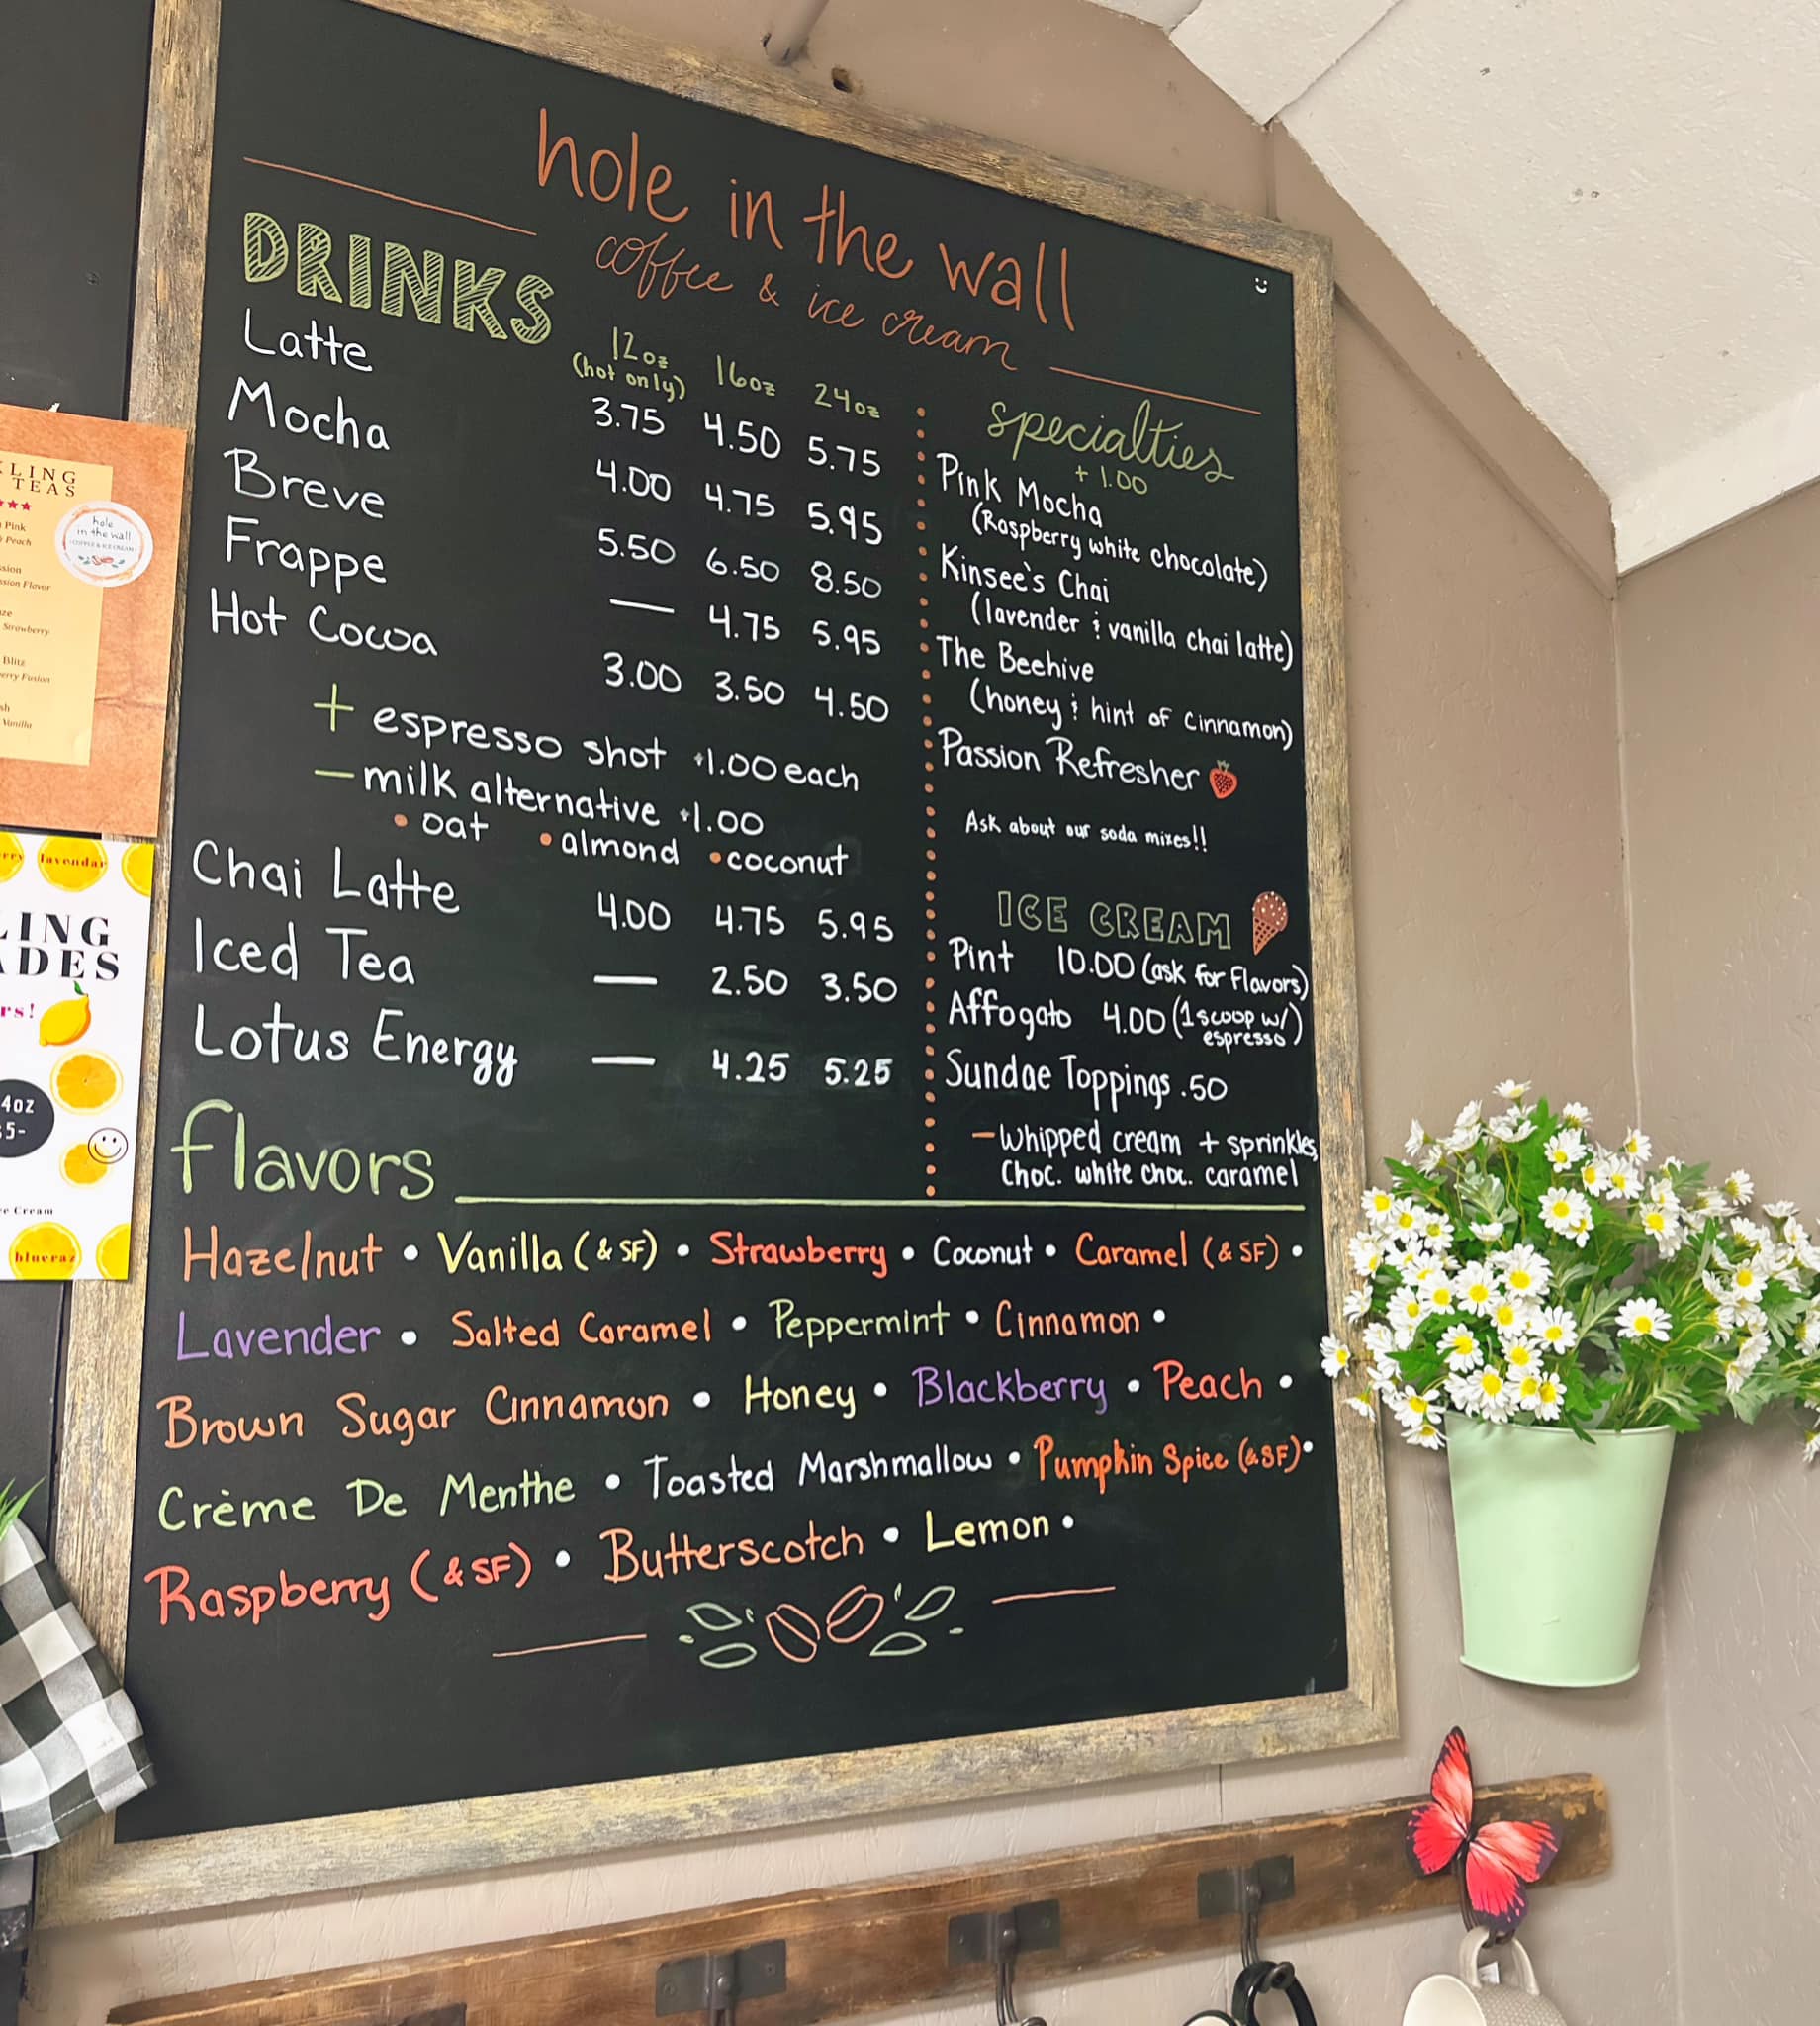 hole in the wall
coffee & ice cream
DRINKS
12oz 16oz 24oz
(hot only)
Latte 3.75 4.50 5.75
Mocha 4.00 4.75 5.95
Breve 5.50 6.50 8.50
Frappe — 4.75 5.95
Hot Cocoa 3.00 3.50 4.50
+ espresso shot +1.00 each
— milk alternative +1.00
• oat • almond • coconut
Chai Latte 4.00 4.75 5.95
Iced Tea — 2.50 3.50
Lotus Energy — 4.25 5.25
specialties
+ 1.00
Pink Mocha
(Raspberry white chocolate)
Kinsee's Chai
(lavender & vanilla chai latte)
The Beehive
(honey & hint of cinnamon)
Passion Refresher
Ask about our soda mixes!!
ICE CREAM
Pint 10.00 (ask for flavors)
Affogato 4.00 (1 scoop w/
espresso)
Sundae Toppings .50
— whipped cream + sprinkles,
Choc. white choc. caramel
flavors
Hazelnut • Vanilla (& SF) • Strawberry • Coconut • Caramel (& SF) •
Lavender • Salted Caramel • Peppermint • Cinnamon •
Brown Sugar Cinnamon • Honey • Blackberry • Peach •
Crème De Menthe • Toasted Marshmallow • Pumpkin Spice (& SF) •
Raspberry (& SF) • Butterscotch • Lemon •
LING
TEAS
Pink
Peach
ssion
ssion Flavor
Strawberry
Blitz
erry Fusion
sh
Vanilla
hole
in the wall
COFFEE & ICE CREAM
lavendar
LING
ADES
rs!
4oz
$5-
e Cream
blueraz